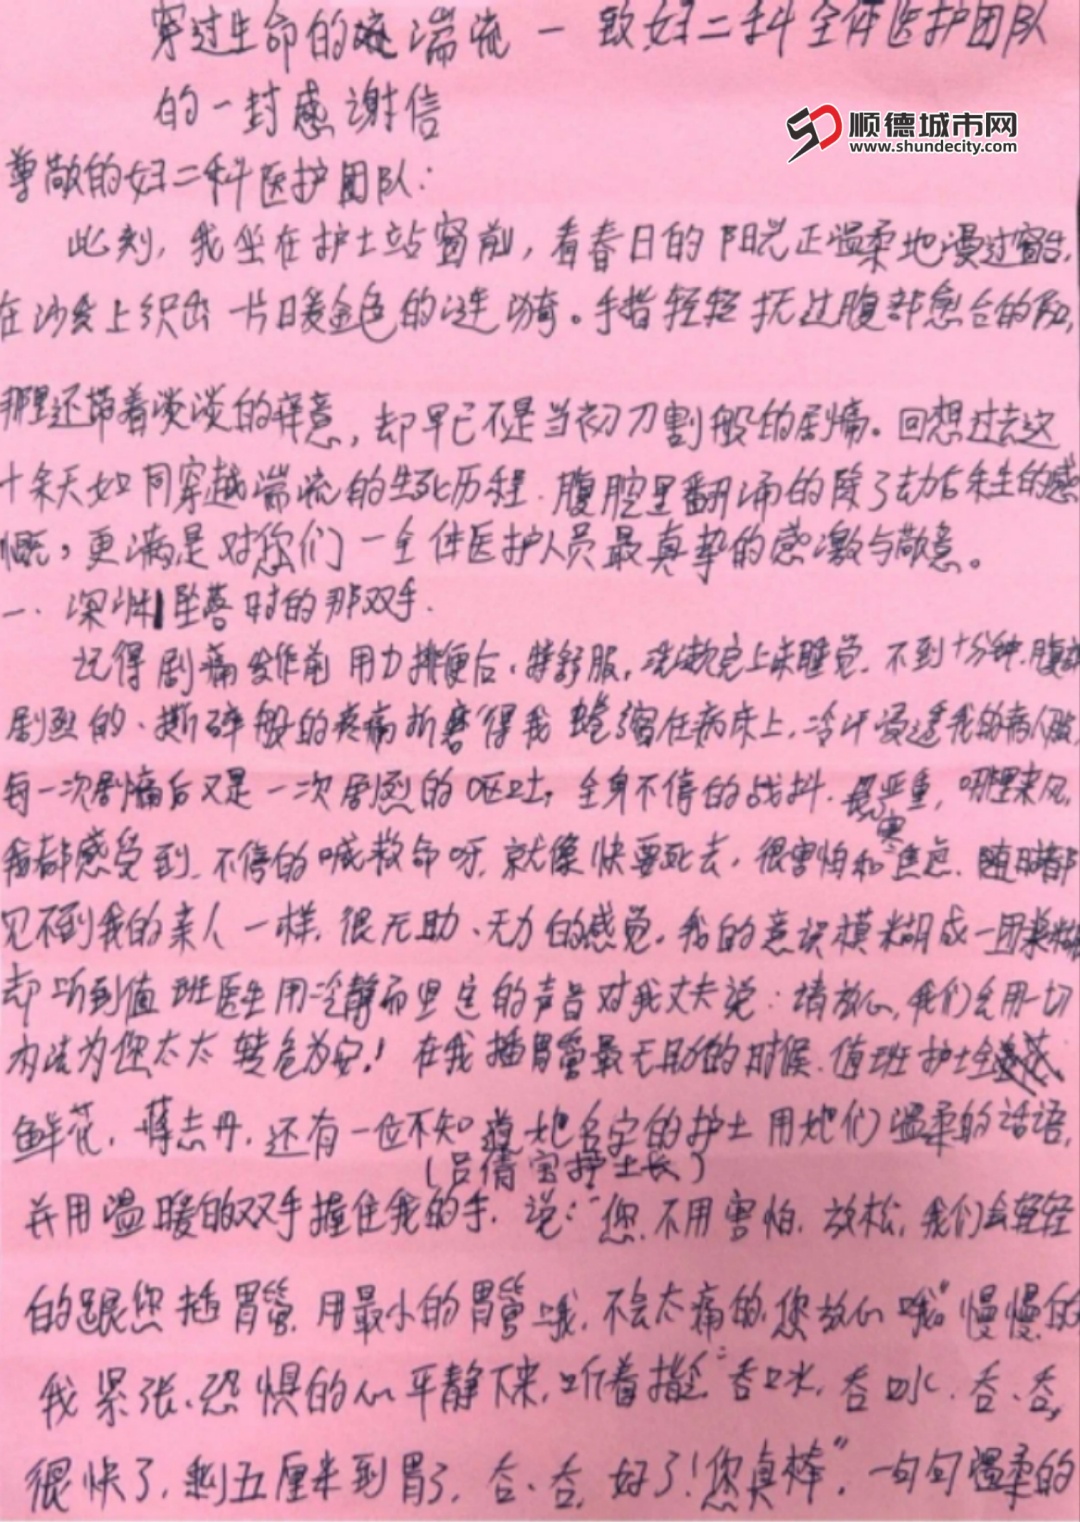 穿过生命的湍流一致妇二科全体医护团队
的一封感谢信
顺德城市网
www.shundecity.com
尊敬的妇二科医护团队:
此刻,我坐在护士站窗前,看春日的阳光正温柔地漫过窗台,
在沙发上织出一片暖金色的涟漪。手指轻轻抚过腹部愈合的
那里还带着淡淡的痒意,却早已不是当初刀割般的剧痛。回想过去这
十余天如同穿越湍流的生死历程.腹腔里翻涌的除了劫后余生的感
慨,更满是对您们一全体医护人员最真挚的感激与敬意。
一.深渊坠落时的那双手.
记得剧痛发作前用力排便后,特舒服,洗漱完上床睡觉.不到十分钟.腹部
剧烈的、撕碎般的疼痛折磨得我蜷缩在病床上,冷汗浸透我的病人服,
每一次剧痛后又是一次剧烈的呕吐,全身不停的战抖.畏寒严重,哪里来风,
我都感受到.不停的喊救命呀.就像快要死去,很害怕和焦急.随时都
见不到我的亲人一样.很无助、无力的感觉。我的意识模糊成一团
却听到值班医生用冷静而坚定的声音对我丈夫说:请放心,我们会用一切
办法为您太太转危为安!在我插胃管最无助的时候.值班护士
鲜花,蒋志丹,还有一位不知道她名字的护士用她们温柔的话语,
(吕倩宝护士长)
并用温暖的双手握住我的手.说:“您.不用害怕.放松,我们会轻轻
的跟您插胃管.用最小的胃管哦.不会太痛的.您放心哦。”慢慢的
我紧张、恐惧的心平静下来,听着指令“吞口水,吞口水.吞、吞,
很快了,剩五厘米到胃了,吞、吞,好了!您真棒”.一句句温柔的